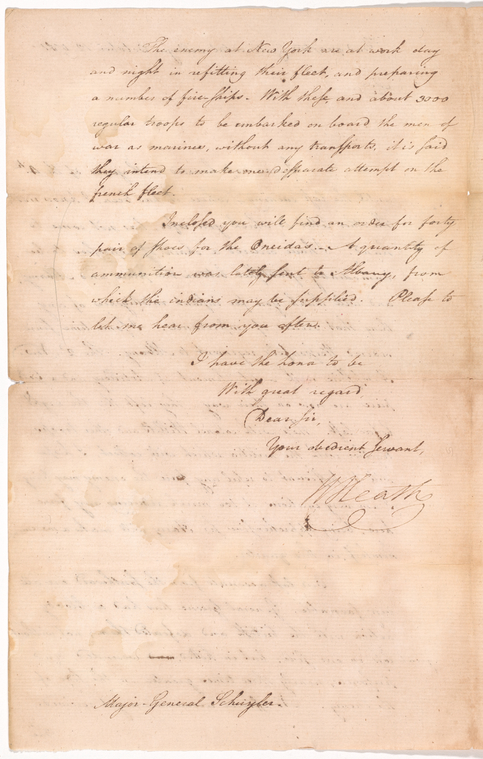 The enemy at New York are at work day
and night in refitting their fleet, and preparing
a number of fire-ships. With these, and about 3000
regular troops to be embarked on board the men of
war as marines, without any transports, it is said
they intend to make one desparate attempt on the
french fleet
Inclosed you will find an order for forty
pair of shoes for the Oneidas. A quantity of
ammunition was lately sent to Albany, from
which the indians may be supplied Please to
let me hear from you often.
I have the honor to be
With great regard
Dear Sir,
Your obedient Servant,
W Heath
Major General Schuyler